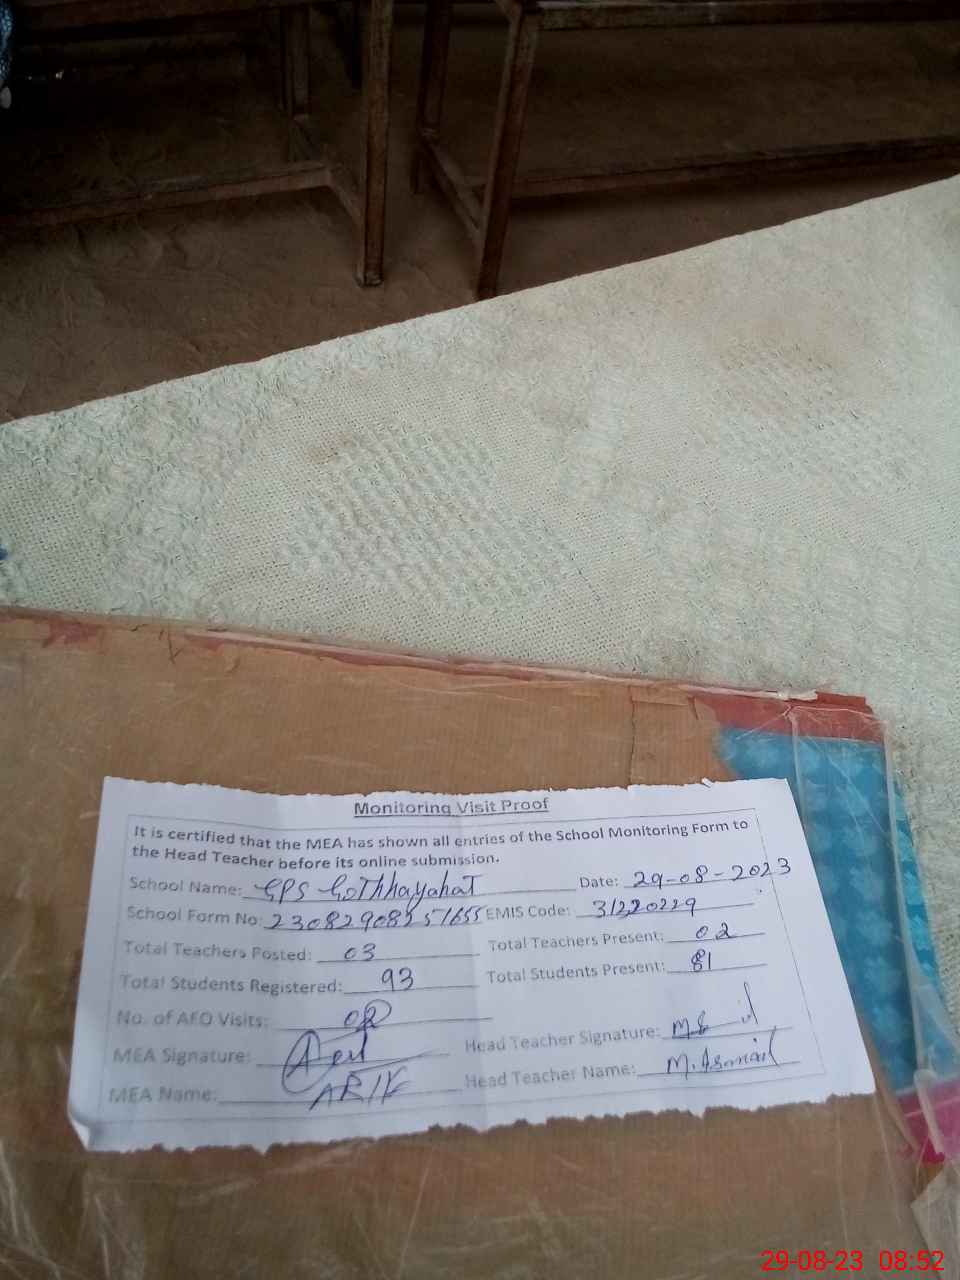 Monitoring Visit Proof
It is certified that the MEA has shown all entries of the School Monitoring Form to
the Head Teacher before its online submission.
School Name: GPS GoTHhayahat Date: 29-08-2023
School Form No: 230829082 51655 EMIS Code: 31220229
Total Teachers Posted: 03 Total Teachers Present: 02
Total Students Registered: 93 Total Students Present: 81
No. of AEO Visits: 02
MEA Signature: Head Teacher Signature:
MEA Name: Head Teacher Name: M. Asmail
29-08-23 08:52